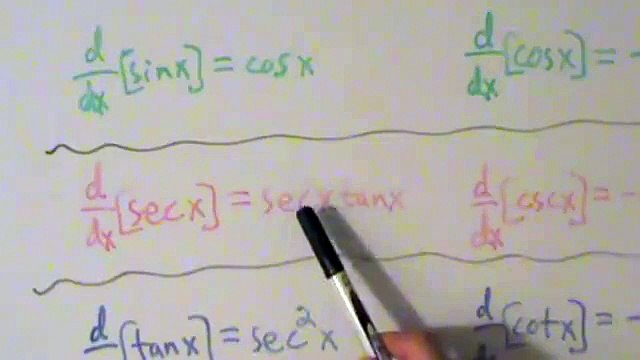 d/dx [sin x] = cos x d/dx [cos x] = -
d/dx [sec x] = sec x tan x d/dx [csc x] = -
d/dx [tan x] = sec² x d/dx [cot x] = -